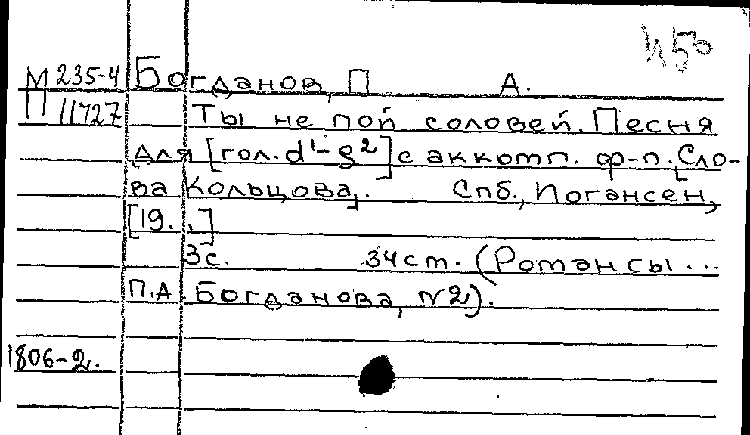 №50
М 235-4 Богданов, П А.
П 11727 Ты не пой соловей. Песня
для [гол. d¹-g²] с аккомп. ф-п. [Сло-
ва Кольцова]. Спб., Иогансен,
[19..]
3с. 34ст. (Романсы ...
П.А Богданова, №2).
1806-2.